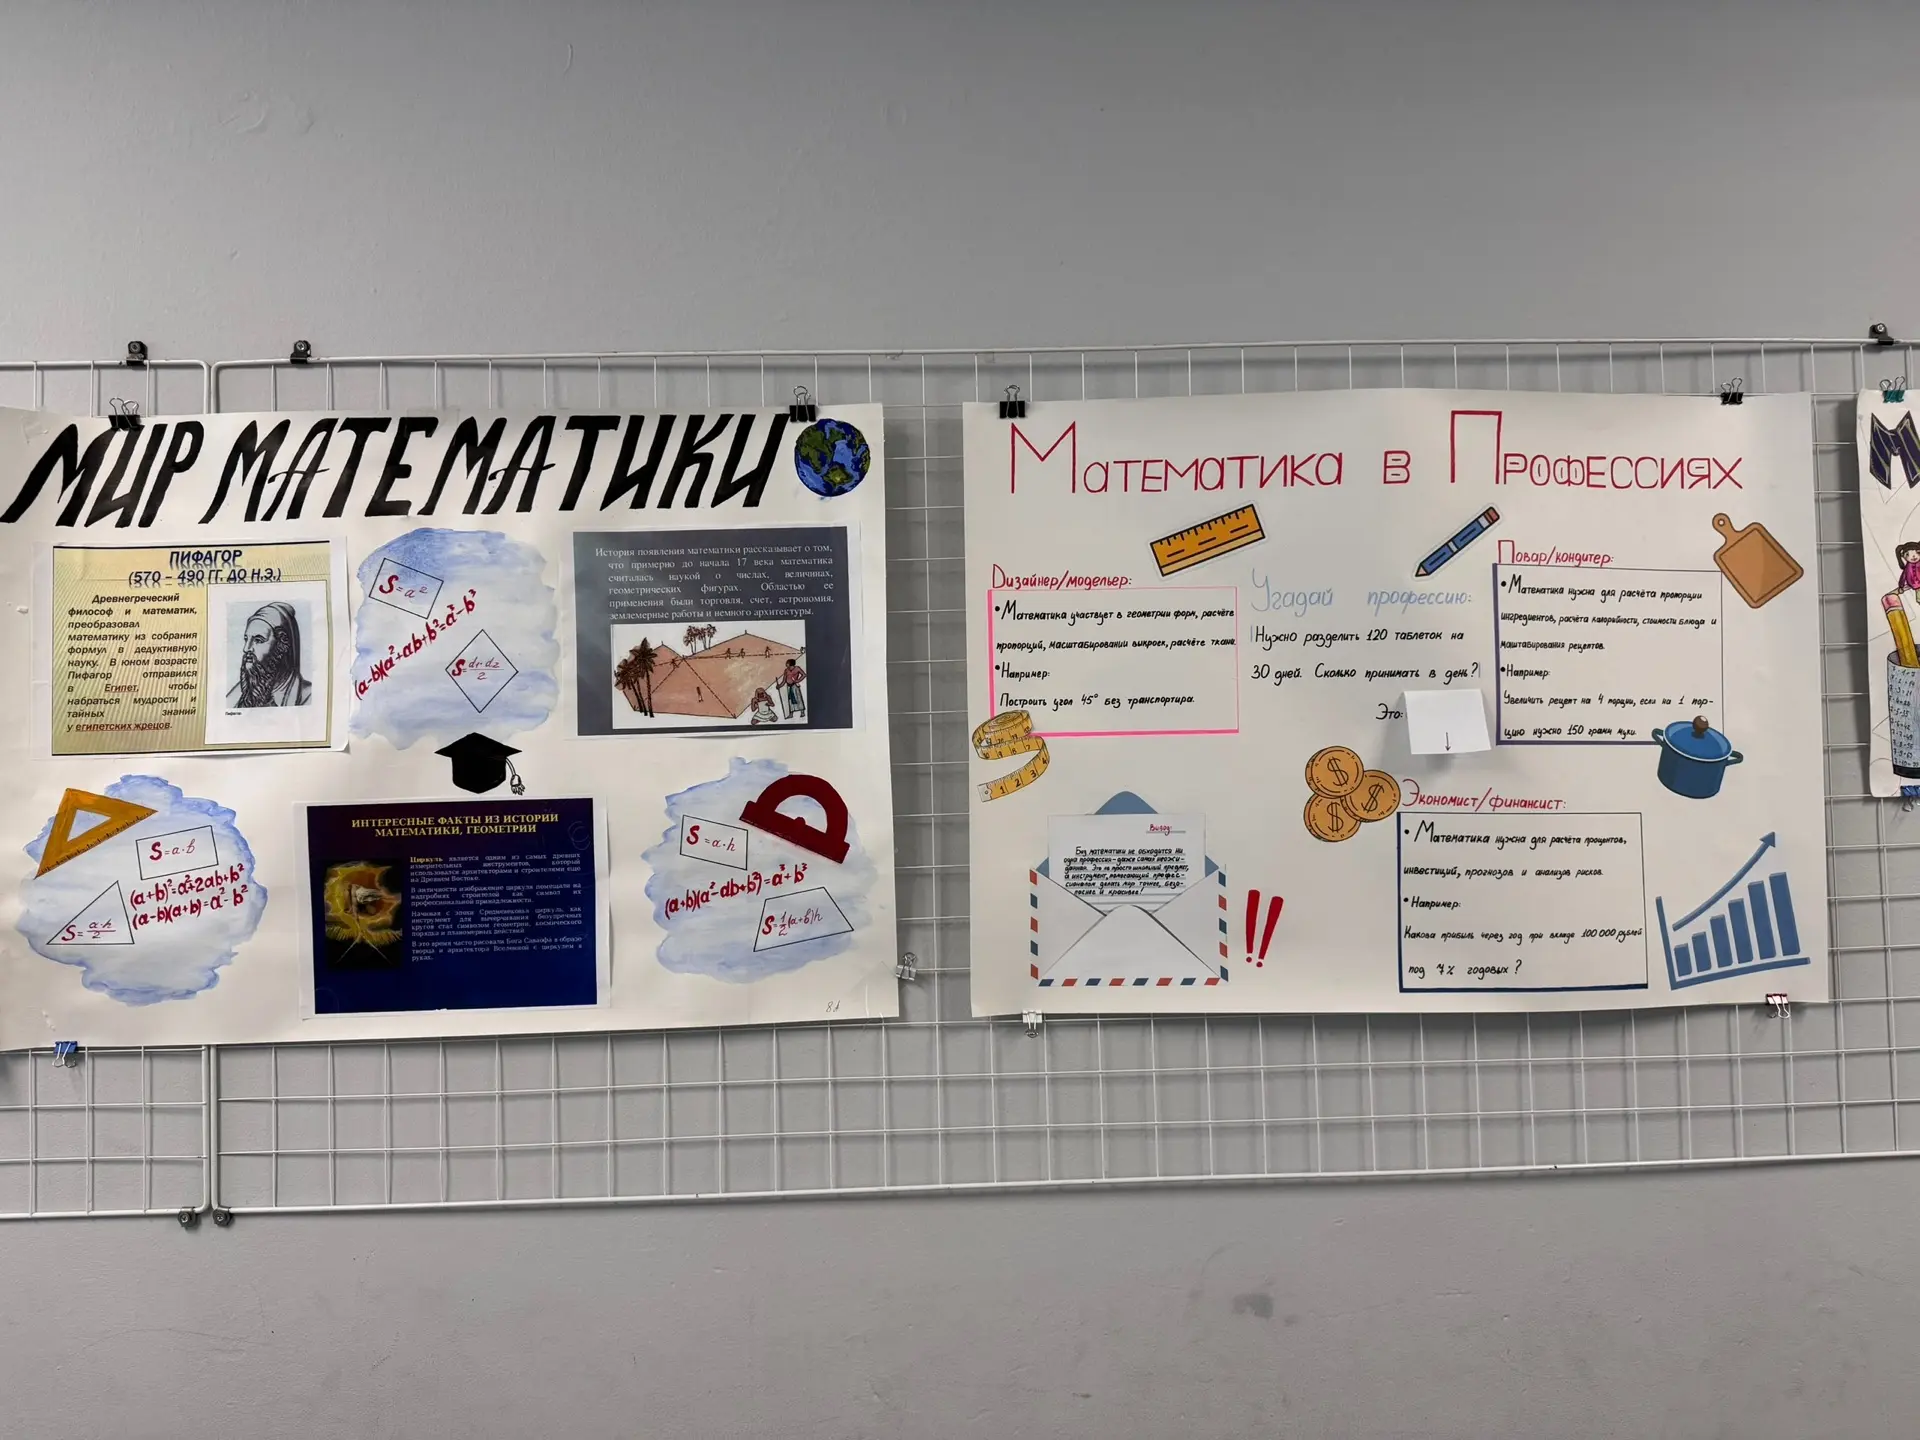 МИР МАТЕМАТИКИ
ПИФАГОР
(570 – 490 ГГ. ДО Н.Э.)
Древнегреческий
философ и математик,
преобразовал
математику из собрания
формул в дедуктивную
науку. В юном возрасте
Пифагор отправился
в Египет, чтобы
набраться мудрости и
тайных знаний
у египетских жрецов.
S=a²
(a-b)(a²+ab+b²)=a³-b³
S=d₁·d₂/2
История появления математики рассказывает о том,
что примерно до начала 17 века математика
считалась наукой о числах, величинах,
геометрических фигурах. Областью ее
применения были торговля, счет, астрономия,
землемерные работы и немного архитектуры.
S=a·b
(a+b)²=a²+2ab+b²
(a-b)(a+b)=a²-b²
S=a·h/2
ИНТЕРЕСНЫЕ ФАКТЫ ИЗ ИСТОРИИ
МАТЕМАТИКИ, ГЕОМЕТРИИ
Циркуль является одним из самых древних
измерительных инструментов, который
использовался архитекторами и строителями еще
на Древнем Востоке.
В античности изображение циркуля помещали на
надгробиях строителей как символ их
профессиональной принадлежности.
Начиная с эпохи Средневековья циркуль, как
инструмент для вычерчивания безупречных
кругов стал символом геометрии, космического
порядка и планомерных действий.
В это время часто рисовали Бога Саваофа в образе
творца и архитектора Вселенной с циркулем в
руках.
S=a·h
(a+b)(a²-ab+b²)=a³+b³
S=½(a+b)h
Математика в Профессиях
Дизайнер/модельер:
• Математика участвует в геометрии форм, расчёте
пропорций, масштабировании выкроек, расчёте ткани.
• Например:
Построить угол 45° без транспортира.
Угадай профессию:
Нужно разделить 120 таблеток на
30 дней. Сколько принимать в день?
Это:
Повар/кондитер:
• Математика нужна для расчёта пропорции
ингредиентов, расчёта калорийности, стоимости блюда и
маштабирования рецептов.
• Например:
Увеличить рецепт на 4 порции, если на 1 пор-
цию нужно 150 грамм муки.
Вывод:
Без математики не обходится ни
одна профессия – даже самая неожи-
данная. Это не просто школьный предмет,
а инструмент, помогающий профес-
сионалам делать мир точнее, безо-
паснее и красивее!
Экономист/финансист:
• Математика нужна для расчёта процентов,
инвестиций, прогнозов и анализа рисков.
• Например:
Какова прибыль через год при вкладе 100 000 рублей
под 7% годовых?